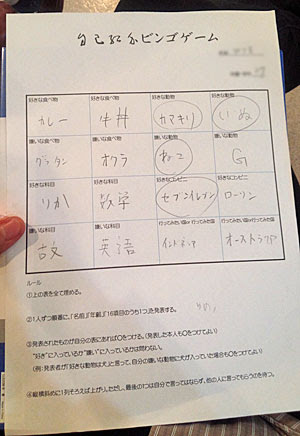 自己紹介ビンゴゲーム
好きな食べ物 好きな食べ物 好きな動物 好きな動物
カレー 牛丼 カマキリ いぬ
嫌いな食べ物 嫌いな食べ物 嫌いな動物 嫌いな動物
グラタン オクラ ねこ G
好きな科目 好きな科目 好きなコンビニ 好きなコンビニ
りか 数学 セブンイレブン ローソン
嫌いな科目 嫌いな科目 行ってみたい国or行ってみた国 行ってみたい国or行ってみた国
古文 英語 インドネシア オーストラリア
ルール
①上の表を全て埋める。
②1人ずつ順番に、「名前」「年齢」「16項目のうち1つ」を発表する。
③発表されたものが自分の表にあれば〇をつける。(発表した本人も〇をつけてよい)
"好き"に入っているか"嫌い"に入っているかは問わない。
(例:発表者が「好きな動物は犬」と言って、自分の嫌いな動物に犬が入っていた場合も〇をつけてよい)
④縦横斜めに1列そろえば上がり。ただし、最後の1つは自分で言ってはならず、他の人に言ってもらうのを待つ。